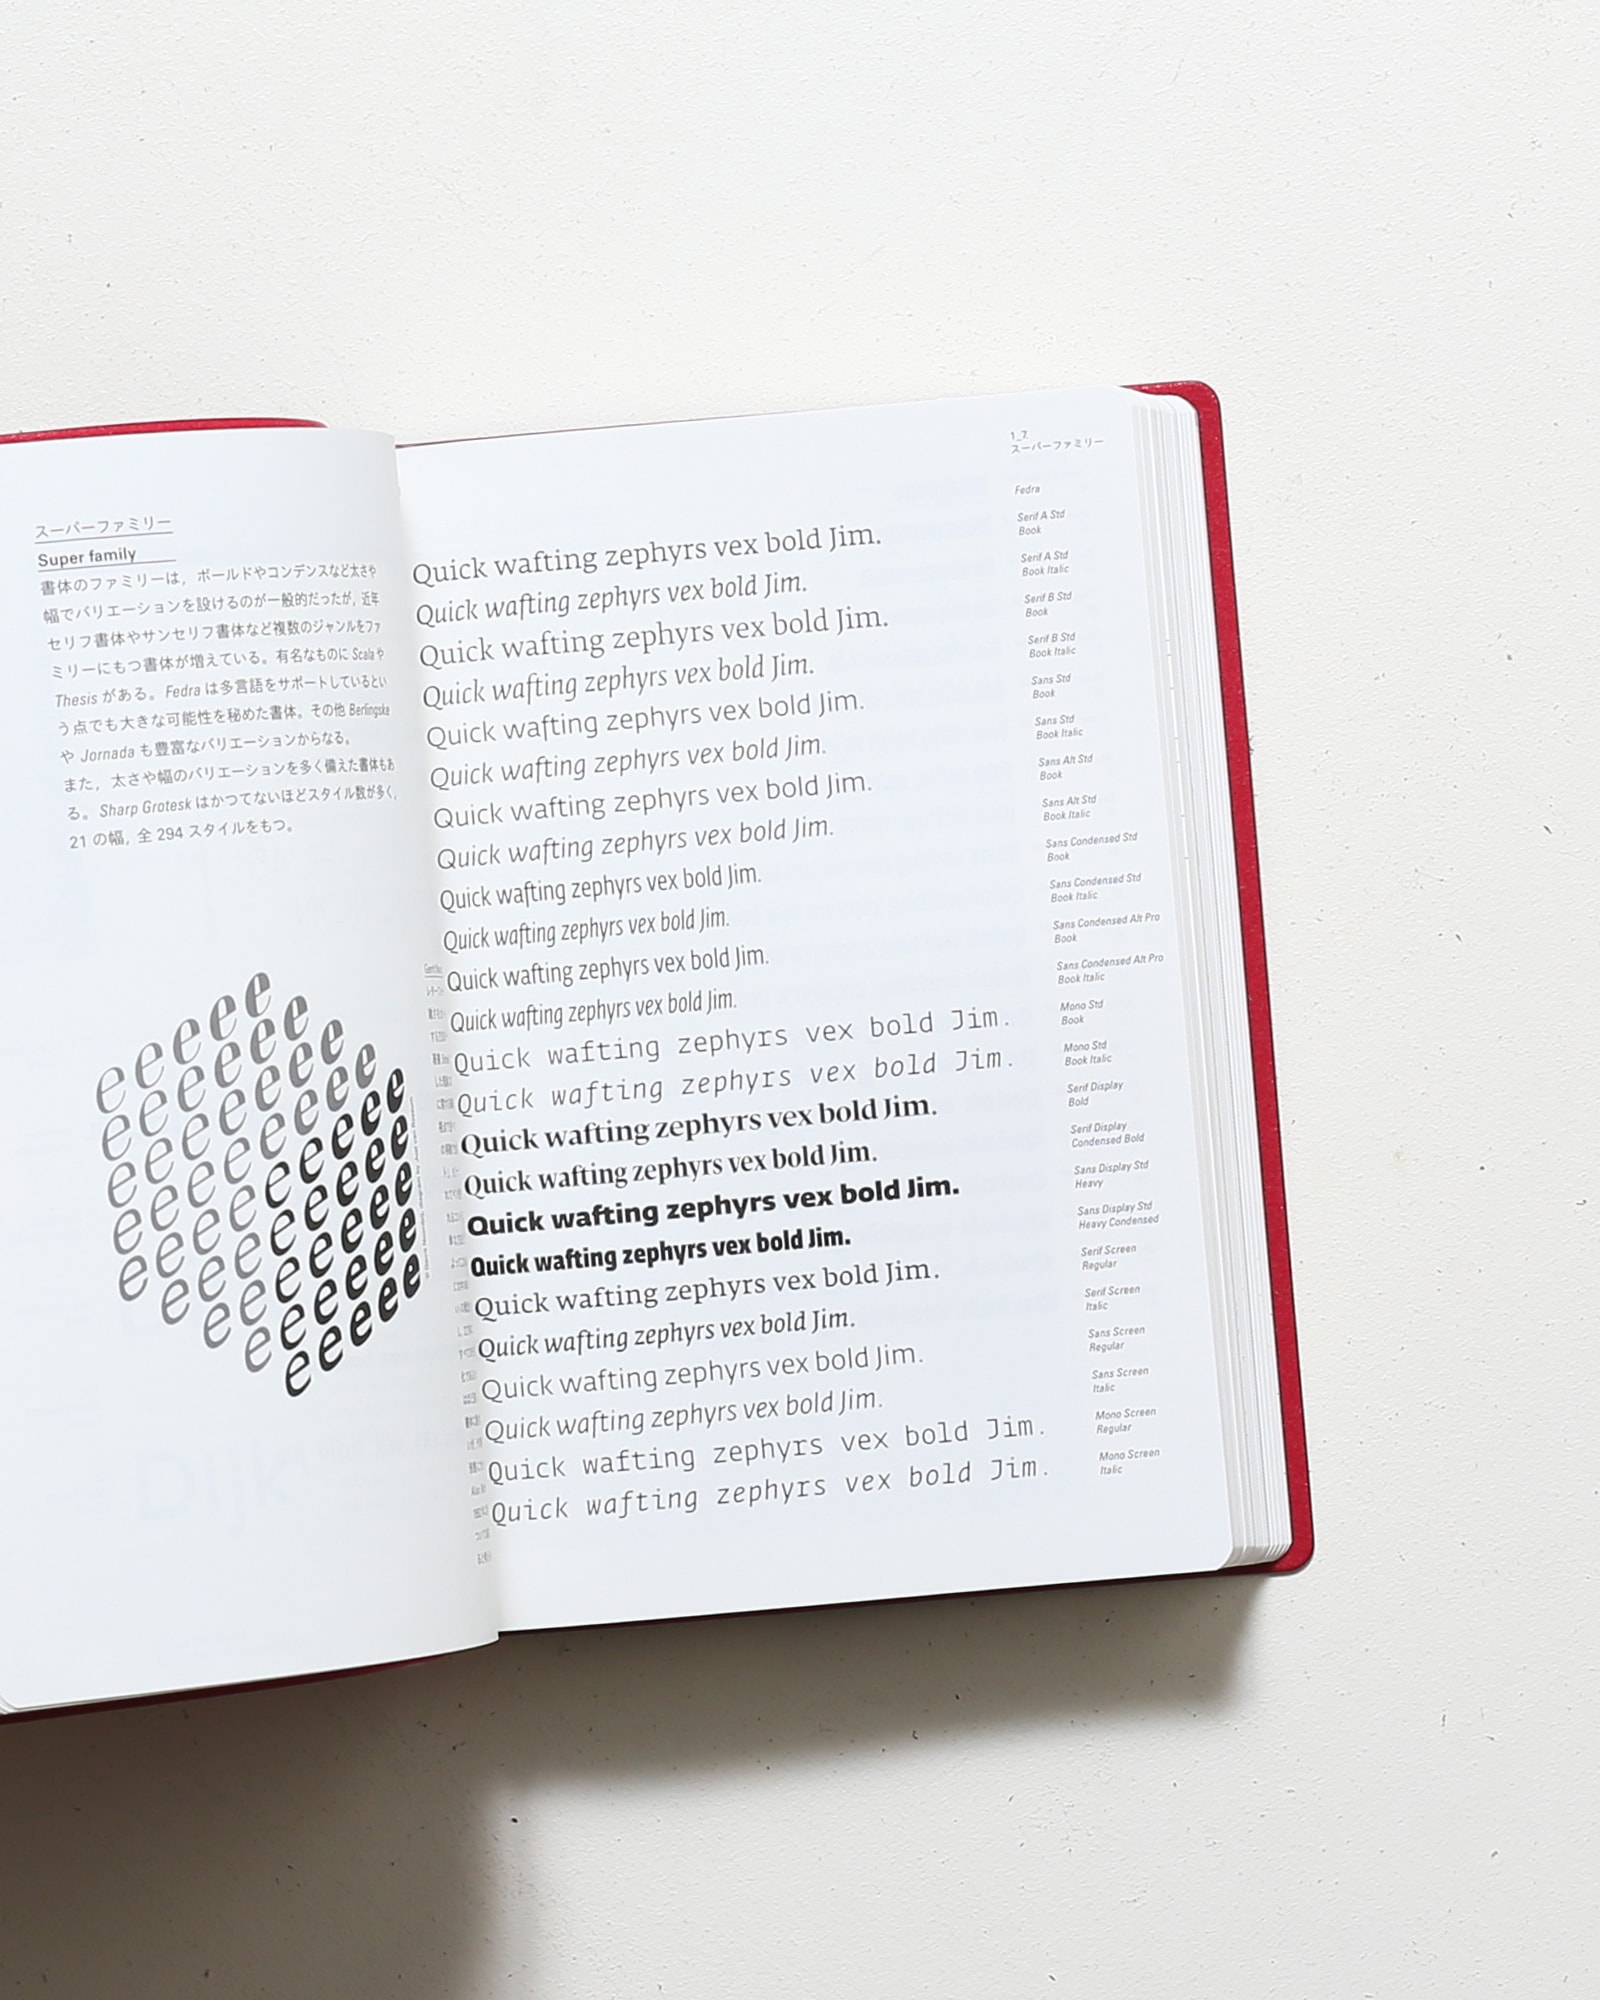 スーパーファミリー
Super family
書体のファミリーは，ボールドやコンデンスなど太さや
幅でバリエーションを設けるのが一般的だったが，近年
セリフ書体やサンセリフ書体など複数のジャンルをファ
ミリーにもつ書体が増えている。有名なものに Scala や
Thesis がある。Fedra は多言語をサポートしているとい
う点でも大きな可能性を秘めた書体。その他 Berlingske
や Jornada も豊富なバリエーションからなる。
また，太さや幅のバリエーションを多く備えた書体もあ
る。Sharp Grotesk はかつてないほどスタイル数が多く，
21 の幅，全 294 スタイルをもつ。
e e e e e
e e e e e e
e e e e e e e
e e e e e e e e
e e e e e e e e e
e e e e e e e e
e e e e e e e
e e e e e e
e e e e e
1_7.
スーパーファミリー
Fedra
Quick wafting zephyrs vex bold Jim.
Serif A Std
Book
Quick wafting zephyrs vex bold Jim.
Serif A Std
Book Italic
Quick wafting zephyrs vex bold Jim.
Serif B Std
Book
Quick wafting zephyrs vex bold Jim.
Serif B Std
Book Italic
Quick wafting zephyrs vex bold Jim.
Sans Std
Book
Quick wafting zephyrs vex bold Jim.
Sans Std
Book Italic
Quick wafting zephyrs vex bold Jim.
Sans Alt Std
Book
Quick wafting zephyrs vex bold Jim.
Sans Alt Std
Book Italic
Quick wafting zephyrs vex bold Jim.
Sans Condensed Std
Book
Quick wafting zephyrs vex bold Jim.
Sans Condensed Std
Book Italic
Quick wafting zephyrs vex bold Jim.
Sans Condensed Alt Pro
Book
Quick wafting zephyrs vex bold Jim.
Sans Condensed Alt Pro
Book Italic
Quick wafting zephyrs vex bold Jim.
Mono Std
Book
Quick wafting zephyrs vex bold Jim.
Mono Std
Book Italic
Quick wafting zephyrs vex bold Jim.
Serif Display
Bold
Quick wafting zephyrs vex bold Jim.
Serif Display
Condensed Bold
Quick wafting zephyrs vex bold Jim.
Sans Display Std
Heavy
Quick wafting zephyrs vex bold Jim.
Sans Display Std
Heavy Condensed
Quick wafting zephyrs vex bold Jim.
Serif Screen
Regular
Quick wafting zephyrs vex bold Jim.
Serif Screen
Italic
Quick wafting zephyrs vex bold Jim.
Sans Screen
Regular
Quick wafting zephyrs vex bold Jim.
Sans Screen
Italic
Quick wafting zephyrs vex bold Jim.
Mono Screen
Regular
Quick wafting zephyrs vex bold Jim.
Mono Screen
Italic